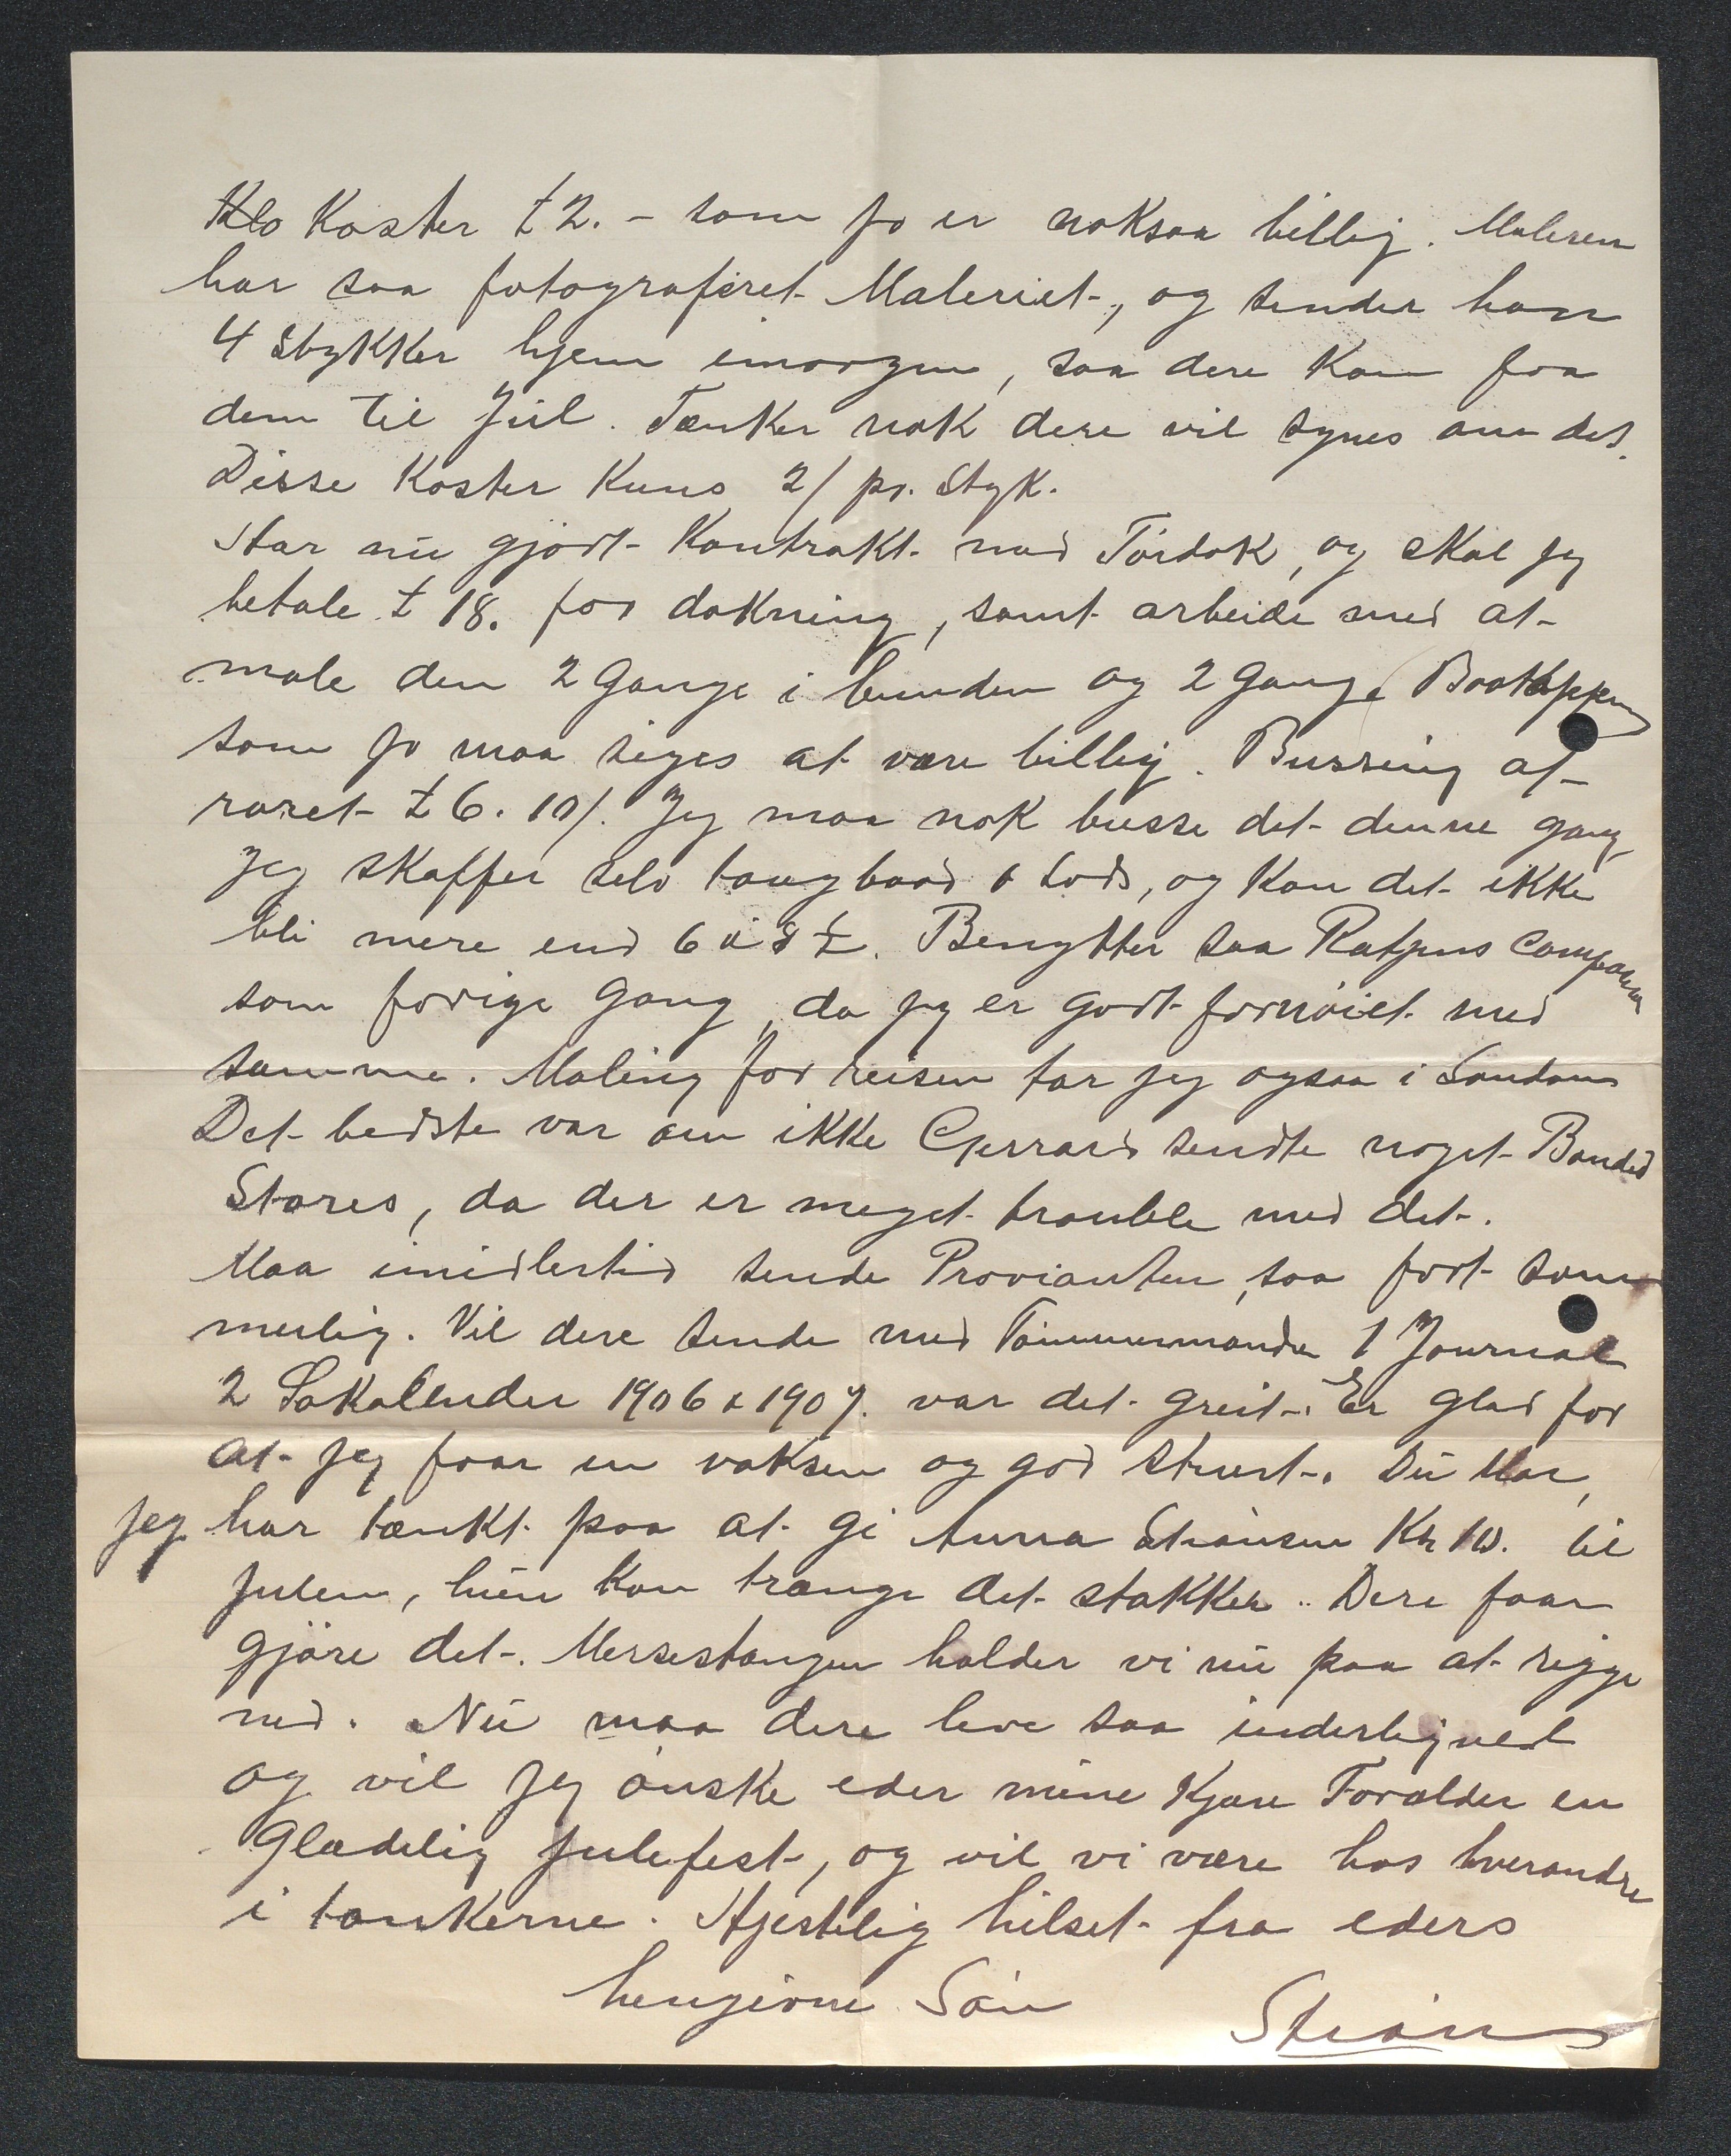 Koster £2. – som jo er noksaa billig. Maleren
har saa fotograferet Maleriet, og sender han
4 Stykker hjem imorgen, saa dere Kan faa
dem til Jul. Tænker nok dere vil synes om det.
Disse Koster Kuns 2/ pr. Styk.
Har nu gjort Kontrakt med Tördok, og skal jeg
betale £ 18. for dokning, samt arbeide med at
male den 2 Gange i bunden og 2 Gange
som jo maa siges at være billig. Bussing af
roret £ 6. 10/. Jeg maa nok busse det denne gang
Jeg skaffer selv taugbaad & Lods, og Kan det ikke
bli mere end 6 a 8 £. Benytter saa Ratjens Composition
som forrige Gang, da jeg er godt fornöiet med
samme. Maling for reisen tar jeg ogsaa i London
Det bedste var om ikke Gerrard sendte noget Bonded
Stores, da der er meget trouble med det.
Maa imidlertid sende Provianten, saa fort som
muelig. Vil dere sende med Tömmermanden 1 Journal
2 Sökalender 1906 & 1907. var det greit. Er glad for
at jeg faar en voksen og god Stuert. Du Mor,
jeg har tænkt paa at gi Anna Kr 10. til
Julen, hun Kan trænge det stakker. Dere faar
gjöre det. Mersestangen holder vi nu paa at rigge
ned. Nu maa dere leve saa inderlig vel
og vil jeg önske eder mine Kjære Forælder en
Glædelig Julefest, og vil vi være hos hverandre
i tankerne. Hjertelig hilset fra eders
hengivne Sön